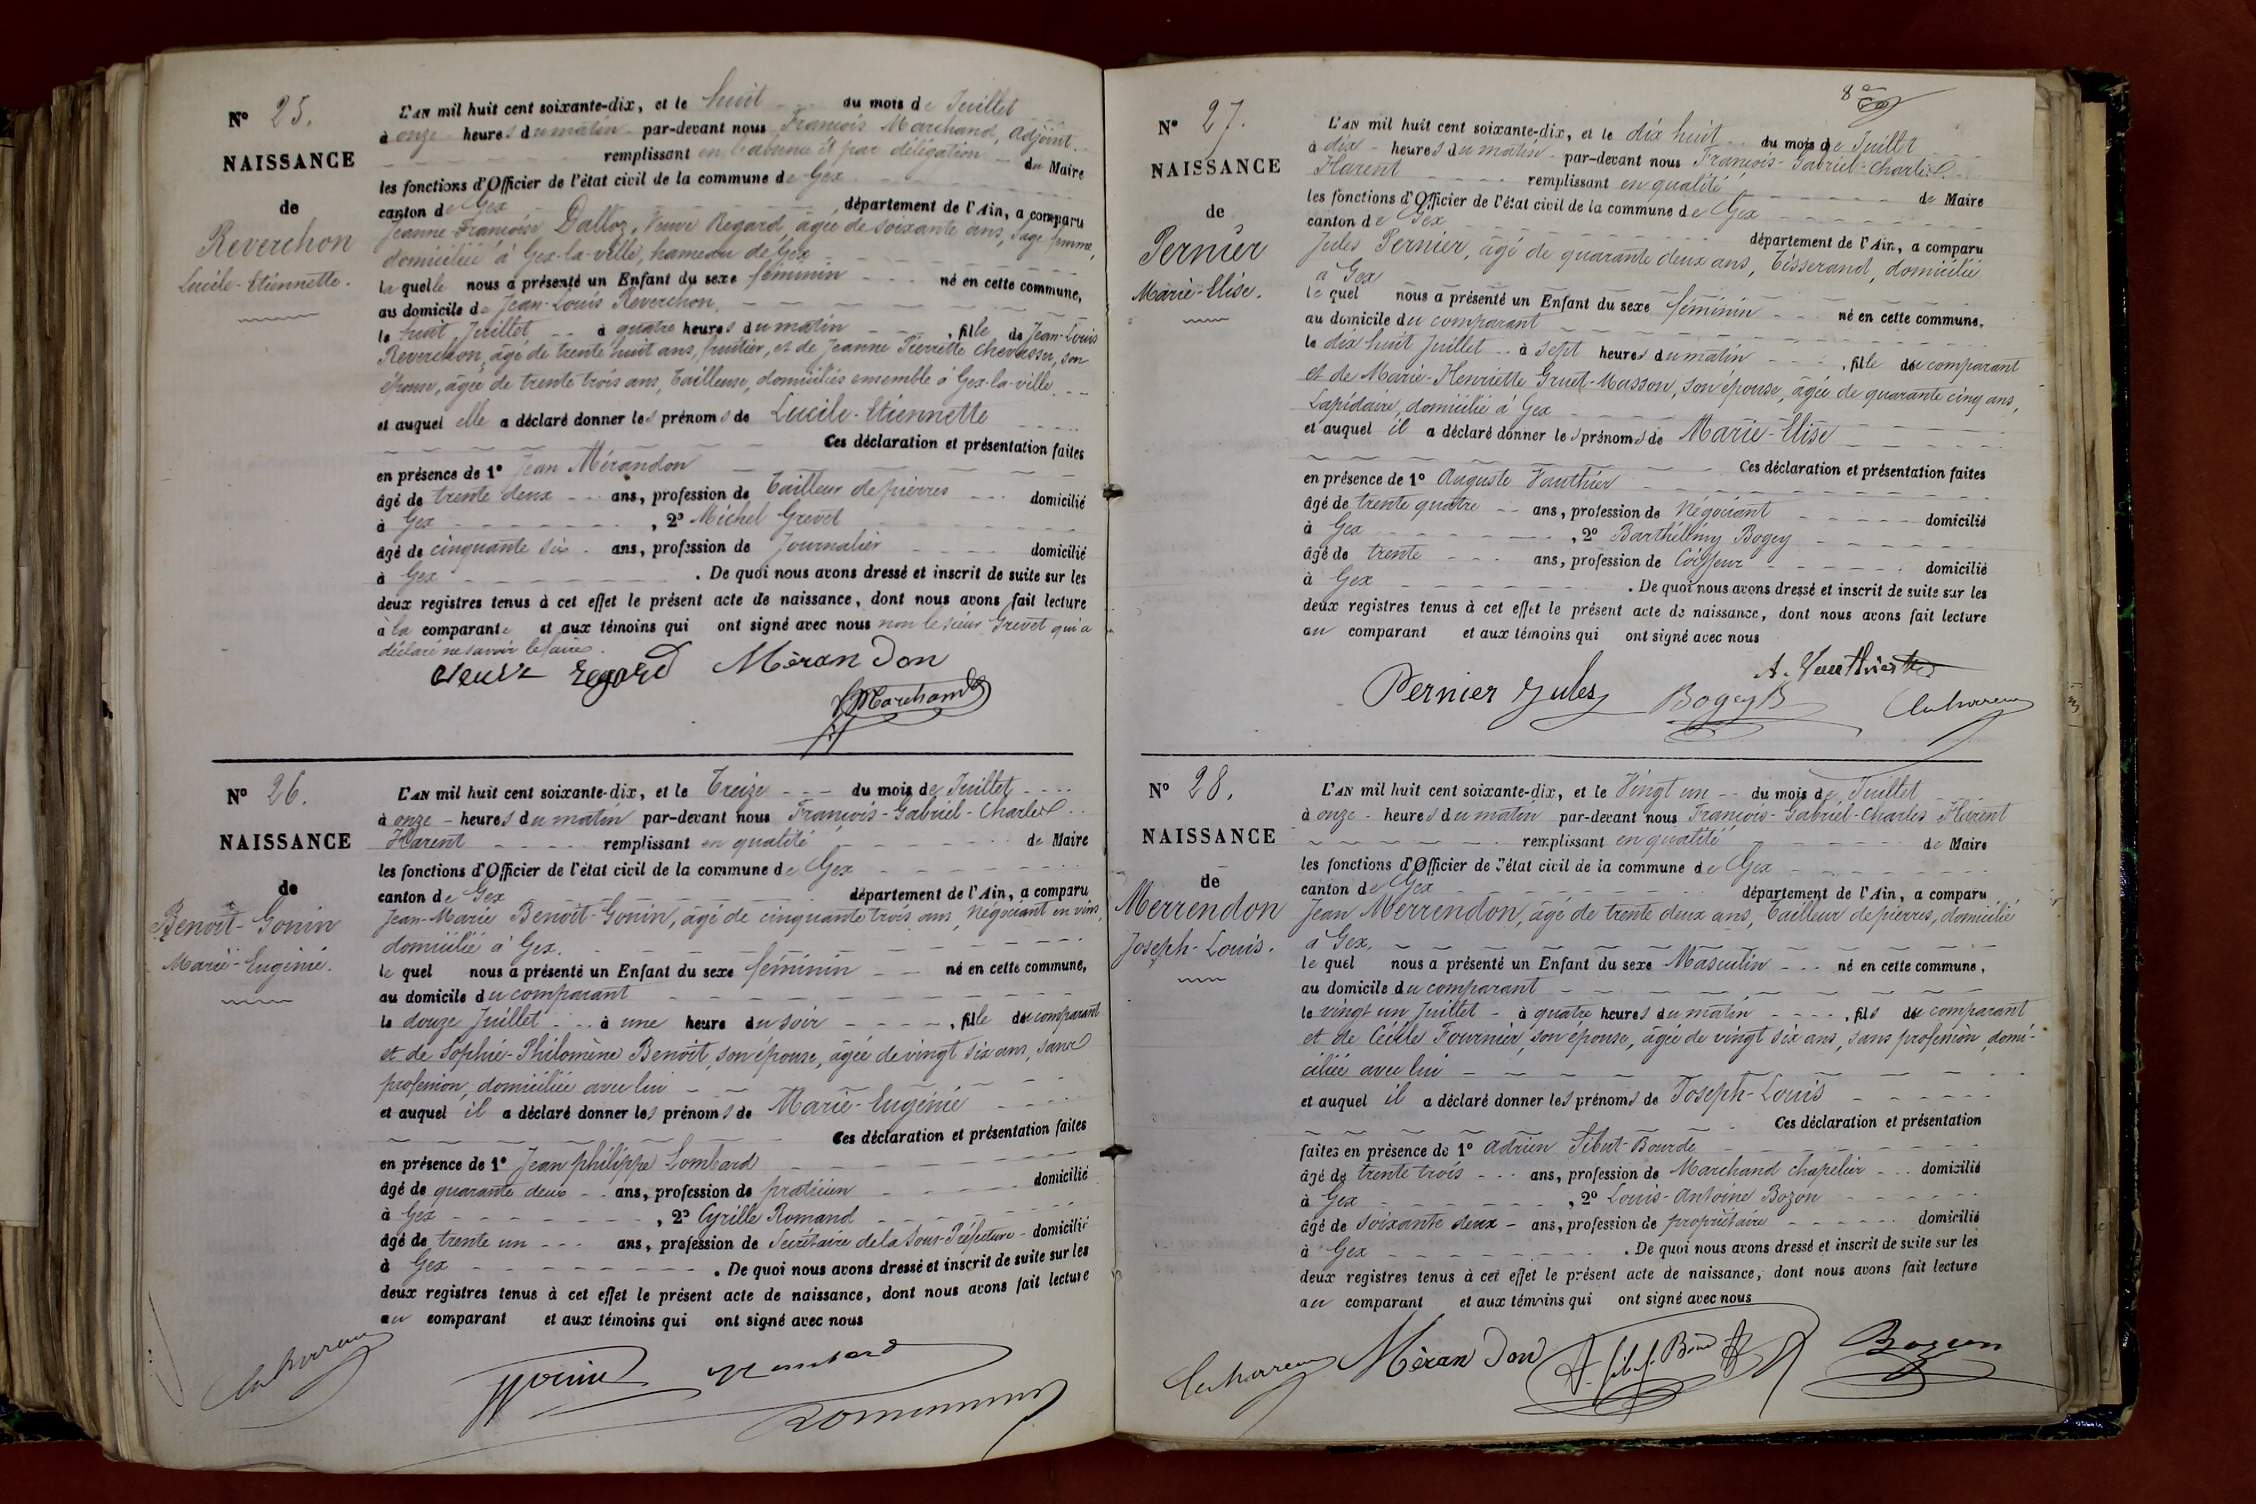 Nº 25.
NAISSANCE
de
Reverchon
Lucile-Etiennette.
L'AN mil huit cent soixante-dix, et le huit du mois de Juillet
à onze heures du matin par-devant nous François Marchand, adjoint
remplissant en l'absence et par délégation du Maire
les fonctions d'Officier de l'état civil de la commune de Gex
canton de Gex département de l'Ain, a comparu
Jeanne-Françoise Dalloz, Veuve Regard, âgée de soixante ans, Sage femme,
domiciliée à Gex-la-ville, hameau de Gex
laquelle nous a présenté un Enfant du sexe féminin né en cette commune,
au domicile de Jean-Louis Reverchon,
le huit Juillet à quatre heures du matin, fille de Jean-Louis
Reverchon, âgé de trente huit ans, fruitier, et de Jeanne Pierrette Chevassu, son
épouse, âgée de trente trois ans, tailleuse, domiciliés ensemble à Gex-la-ville
et auquel elle a déclaré donner les prénoms de Lucile-Etiennette
Ces déclaration et présentation faites
en présence de 1º Jean Mérandon
âgé de trente deux ans, profession de Tailleur de pierres domicilié
à Gex, 2º Michel Grevet
âgé de cinquante six ans, profession de Journalier domicilié
à Gex. De quoi nous avons dressé et inscrit de suite sur les
deux registres tenus à cet effet le présent acte de naissance, dont nous avons fait lecture
à la comparante et aux témoins qui ont signé avec nous non le sieur Grevet qui a
déclaré ne savoir le faire.
veuve Regard Mèrandon
Marchand
Nº 26.
NAISSANCE
de
Benoit-Gonin
Marie-Eugénie.
L'AN mil huit cent soixante-dix, et le Treize du mois de Juillet
à onze heures du matin par-devant nous François-Gabriel-Charles
Harent remplissant en qualité de Maire
les fonctions d'Officier de l'état civil de la commune de Gex
canton de Gex département de l'Ain, a comparu
Jean-Marie Benoit-Gonin, âgé de cinquante trois ans, Négociant en vins,
domicilié à Gex.
lequel nous a présenté un Enfant du sexe féminin né en cette commune,
au domicile du comparant
le douze Juillet à une heure du soir, fille du comparant
et de Sophie-Philomène Benoit, son épouse, âgée de vingt six ans, sans
profession, domiciliée avec lui
et auquel il a déclaré donner les prénoms de Marie-Eugénie
Ces déclaration et présentation faites
en présence de 1º Jean philippe Lombard
âgé de quarante deux ans, profession de praticien domicilié
à Gex, 2º Cyrille Romand
âgé de trente un ans, profession de Secrétaire de la Sous-Préfecture domicilié
à Gex. De quoi nous avons dressé et inscrit de suite sur les
deux registres tenus à cet effet le présent acte de naissance, dont nous avons fait lecture
au comparant et aux témoins qui ont signé avec nous
8e
Nº 27.
NAISSANCE
de
Pernier
Marie-Elise.
L'AN mil huit cent soixante-dix, et le dix huit du mois de Juillet
à dix heures du matin par-devant nous François-Gabriel-Charles
Harent remplissant en qualité de Maire
les fonctions d'Officier de l'état civil de la commune de Gex
canton de Gex département de l'Ain, a comparu
Jules Pernier, âgé de quarante deux ans, Tisserand, domicilié
à Gex
lequel nous a présenté un Enfant du sexe féminin né en cette commune,
au domicile du comparant
le dix huit Juillet à sept heures du matin, fille du comparant
et de Marie-Henriette Gruet-Masson, son épouse, âgée de quarante cinq ans,
Lapidaire, domicilié à Gex
et auquel il a déclaré donner les prénoms de Marie-Elise
Ces déclaration et présentation faites
en présence de 1º Auguste Vauthier
âgé de trente quatre ans, profession de Négociant domicilié
à Gex, 2º Barthélémy Bogey
âgé de trente ans, profession de Coiffeur domicilié
à Gex. De quoi nous avons dressé et inscrit de suite sur les
deux registres tenus à cet effet le présent acte de naissance, dont nous avons fait lecture
au comparant et aux témoins qui ont signé avec nous
A. Vauthier
Pernier Jules Bogey B
Nº 28.
NAISSANCE
de
Merrendon
Joseph-Louis.
L'AN mil huit cent soixante-dix, et le Vingt un du mois de Juillet
à onze heures du matin par-devant nous François-Gabriel-Charles Harent
remplissant en qualité de Maire
les fonctions d'Officier de l'état civil de la commune de Gex
canton de Gex département de l'Ain, a comparu
Jean Merrendon, âgé de trente deux ans, Tailleur de pierres, domicilié
à Gex,
lequel nous a présenté un Enfant du sexe Masculin né en cette commune,
au domicile du comparant
le vingt un Juillet à quatre heures du matin, fils du comparant
et de Cécile Fournier, son épouse, âgée de vingt six ans, sans profession, domi-
ciliée avec lui
et auquel il a déclaré donner les prénoms de Joseph-Louis
Ces déclaration et présentation
faites en présence de 1º Adrien Sibut-Bourde
âgé de trente trois ans, profession de Marchand chapelier domicilié
à Gex, 2º Louis-Antoine Bozon
âgé de soixante deux ans, profession de propriétaire domicilié
à Gex. De quoi nous avons dressé et inscrit de suite sur les
deux registres tenus à cet effet le présent acte de naissance, dont nous avons fait lecture
au comparant et aux témoins qui ont signé avec nous
Mèrandon Bozon